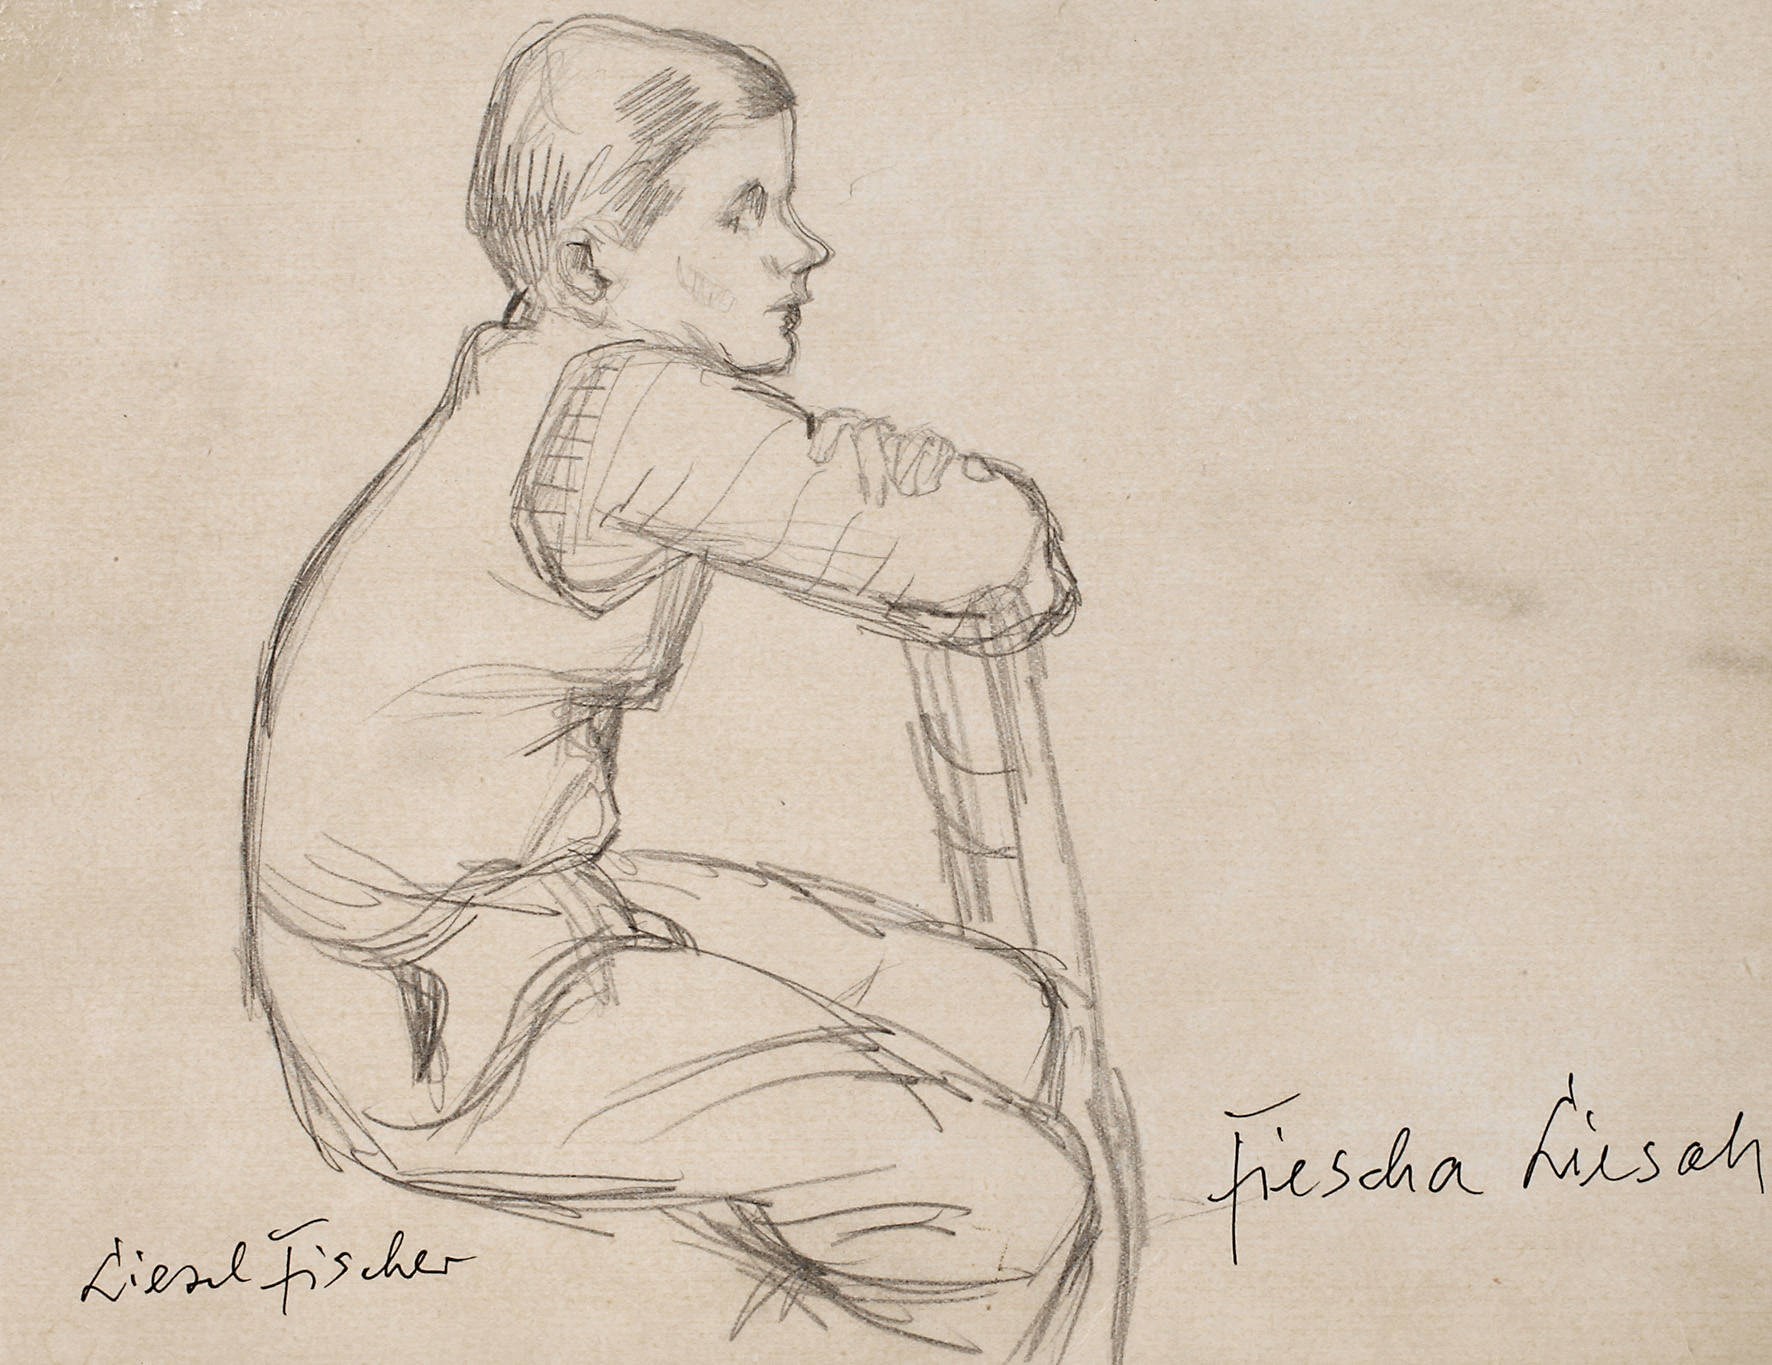 Fiescha Liesah
Liesel Fischer